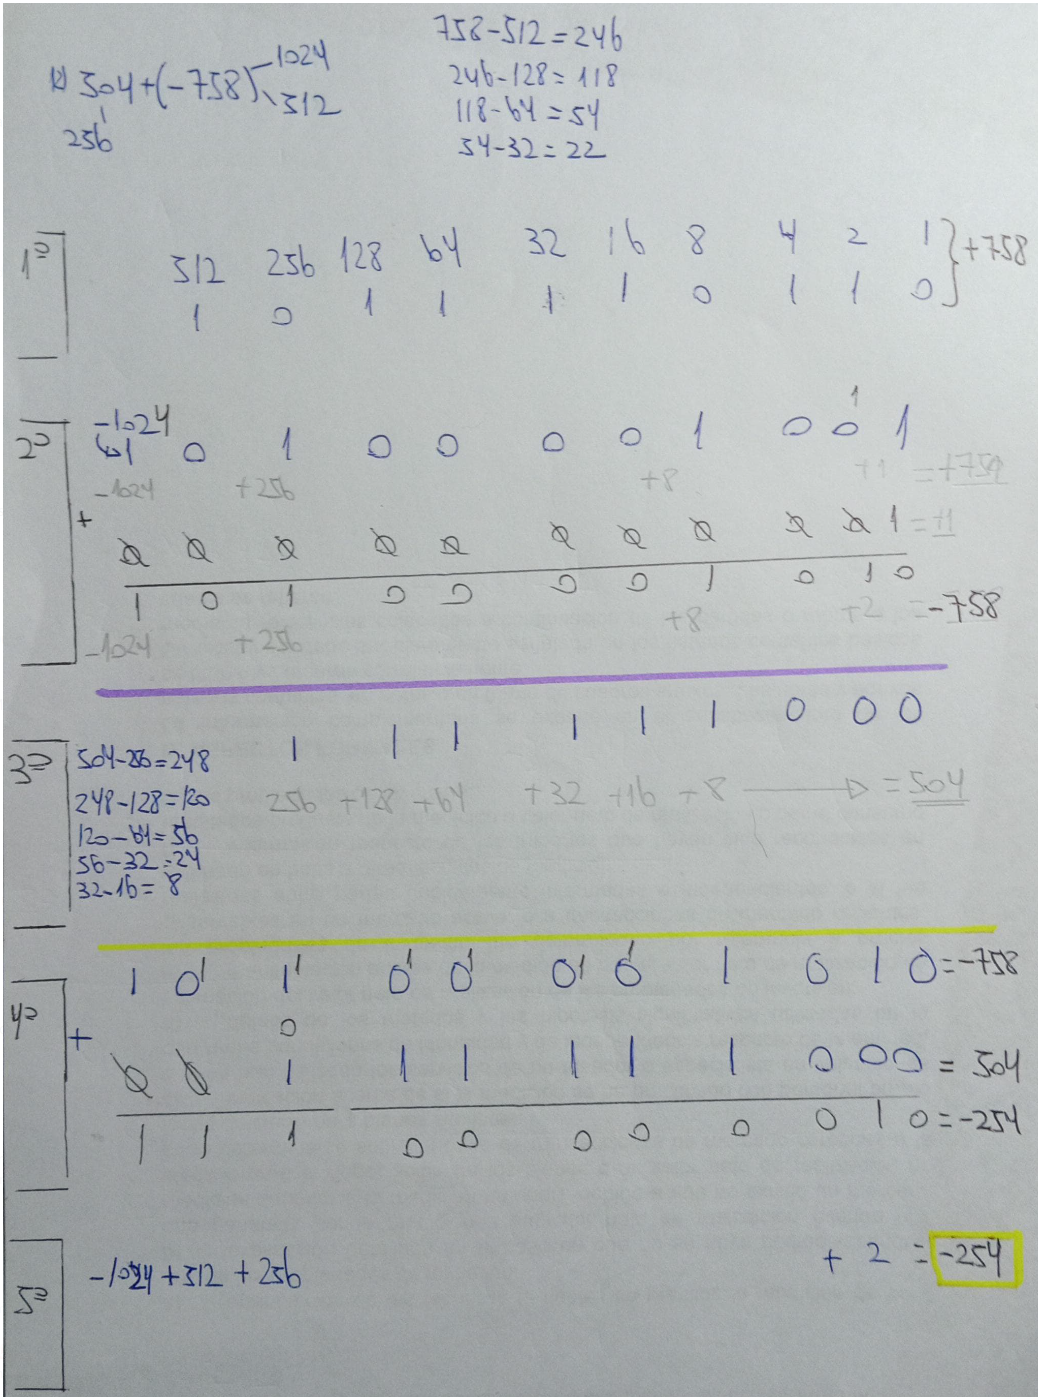 k) 504+(-758) -1024
512
256
758-512=246
246-128=118
118-64=54
54-32=22
1º
512 256 128 64 32 16 8 4 2 1 } +758
1 0 1 1 1 1 0 1 1 0
2º
-1024 1
↳1 0 1 0 0 0 0 1 0 0 1
-1024 +256 +8 +1 =+759
+ 0 0 0 0 0 0 0 0 0 0 1 =+1
1 0 1 0 0 0 0 1 0 1 0
-1024 +256 +8 +2 =-758
3º
1 1 1 1 1 1 0 0 0
504-256=248
248-128=120
256 +128 +64 +32 +16 +8 → =504
120-64=56
56-32=24
32-16=8
4º
1 0¹ 1¹ 0¹ 0¹ 0¹ 0¹ 1 0 1 0=-758
0
+ 0 0 1 1 1 1 1 1 0 0 0 = 504
1 1 1 0 0 0 0 0 0 1 0=-254
5º
-1024+512+256 + 2 = -254